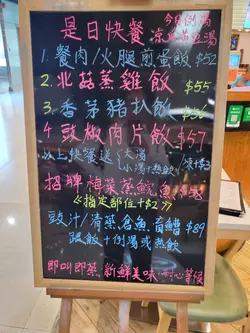 是日快餐
今日例湯
1. 餐肉/火腿煎蛋飯 $52
2. 北菇蒸雞飯 $55
3. 香茅豬扒飯 $56
4 豉椒肉片飯 $57
以上快餐送
招牌梅菜蒸鯇魚 $58
《指定部位+$2》
豉汁/清蒸倉魚 盲鰽 $89
跟飯+例湯或熱飲
即叫即蒸，新鮮美味，耐心等候